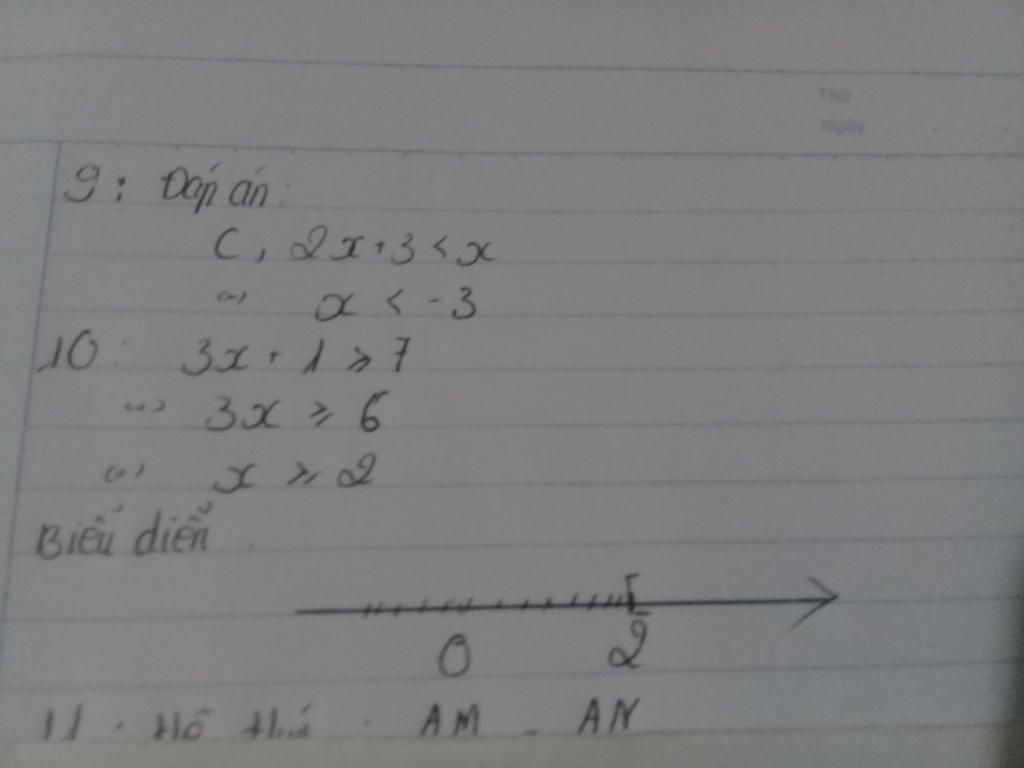 Thứ
Ngày
9: Đáp án:
C, 2x+3 < x
<=> x < -3
10: 3x + 1 ≥ 7
<=> 3x ≥ 6
<=> x ≥ 2
Biểu diễn
0 2
11. Hệ thức AM AN